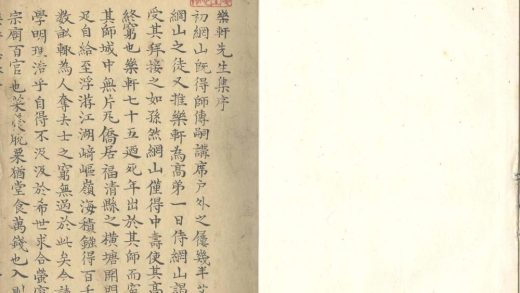 樂軒先生集序
初網山既得師傳嗣講席戶外之屨幾半艾
網山之徒又推樂軒為高弟一日侍網山謁
受其拜接之如孫然網山僅得中壽使其高
終窮也樂軒七十五迺死年出於其師而窮
其師城中無片瓦僑居福清縣之橫塘開門
足自給至浮游江湖崎嶇嶺海積鏹得百千
數畝輙為人奪去士之窮無過於此矣今讀
學明理浩乎自得不汲汲於希世求合螢窗
宗廟百官也菜羹脫粟猶堂食萬錢也入則